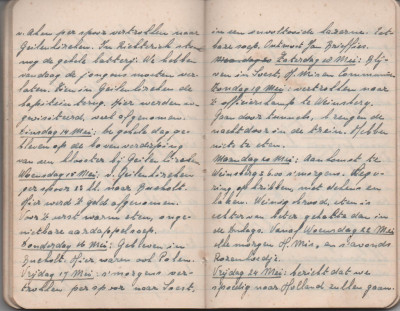 v. Aken per spoor vertrokken naar
Geilenkirchen. In Richterich stond
nog de gehele batterij. We hebben
vandaag de jongens moeten ver-
laten. Hier in Geilenkirchen de
kapitein terug. Hier werden we
gevisiteerd, veel afgenomen.
Dinsdag 14 Mei: de gehele dag ge-
bleven op de bovenverdieping
van een klooster bij Geilenkirchen
Woensdag 15 Mei: v. Geilenkirchen
per spoor 12 h. naar Bocholt.
Hier werd 't geld afgenomen.
Voor 't eerst warm eten, onge-
nietbare aardappelsoep.
Donderdag 16 Mei: Gebleven in
Bocholt. Hier waren ook Polen.
Vrijdag 17 Mei: 's morgens ver-
trokken per spoor naar Soest.
in een onvoltooide kazerne. Eet-
bare soep. Ontmoet Jan
Zaterdag 18 Mei: Blij-
ven in Soest. H. Mis en Communie
Zondag 19 Mei: vertrokken naar
't officierskamp te Weinsberg.
Gaan door tunnels, brengen de
nacht door in de trein. Hebben
niets te eten.
Maandag 20 Mei: Aankomst te
Weinsberg 6 uur 's morgens. Lege-
ring op kribben, met dekens en
laken. Weinig brood, eten is
echter van beter gehalte dan in
de vorige. Vanaf Woensdag 22 Mei
elke morgen H. Mis, en 's avonds
Rozenhoedje.
Vrijdag 24 Mei: bericht dat we
spoedig naar Holland zullen gaan.